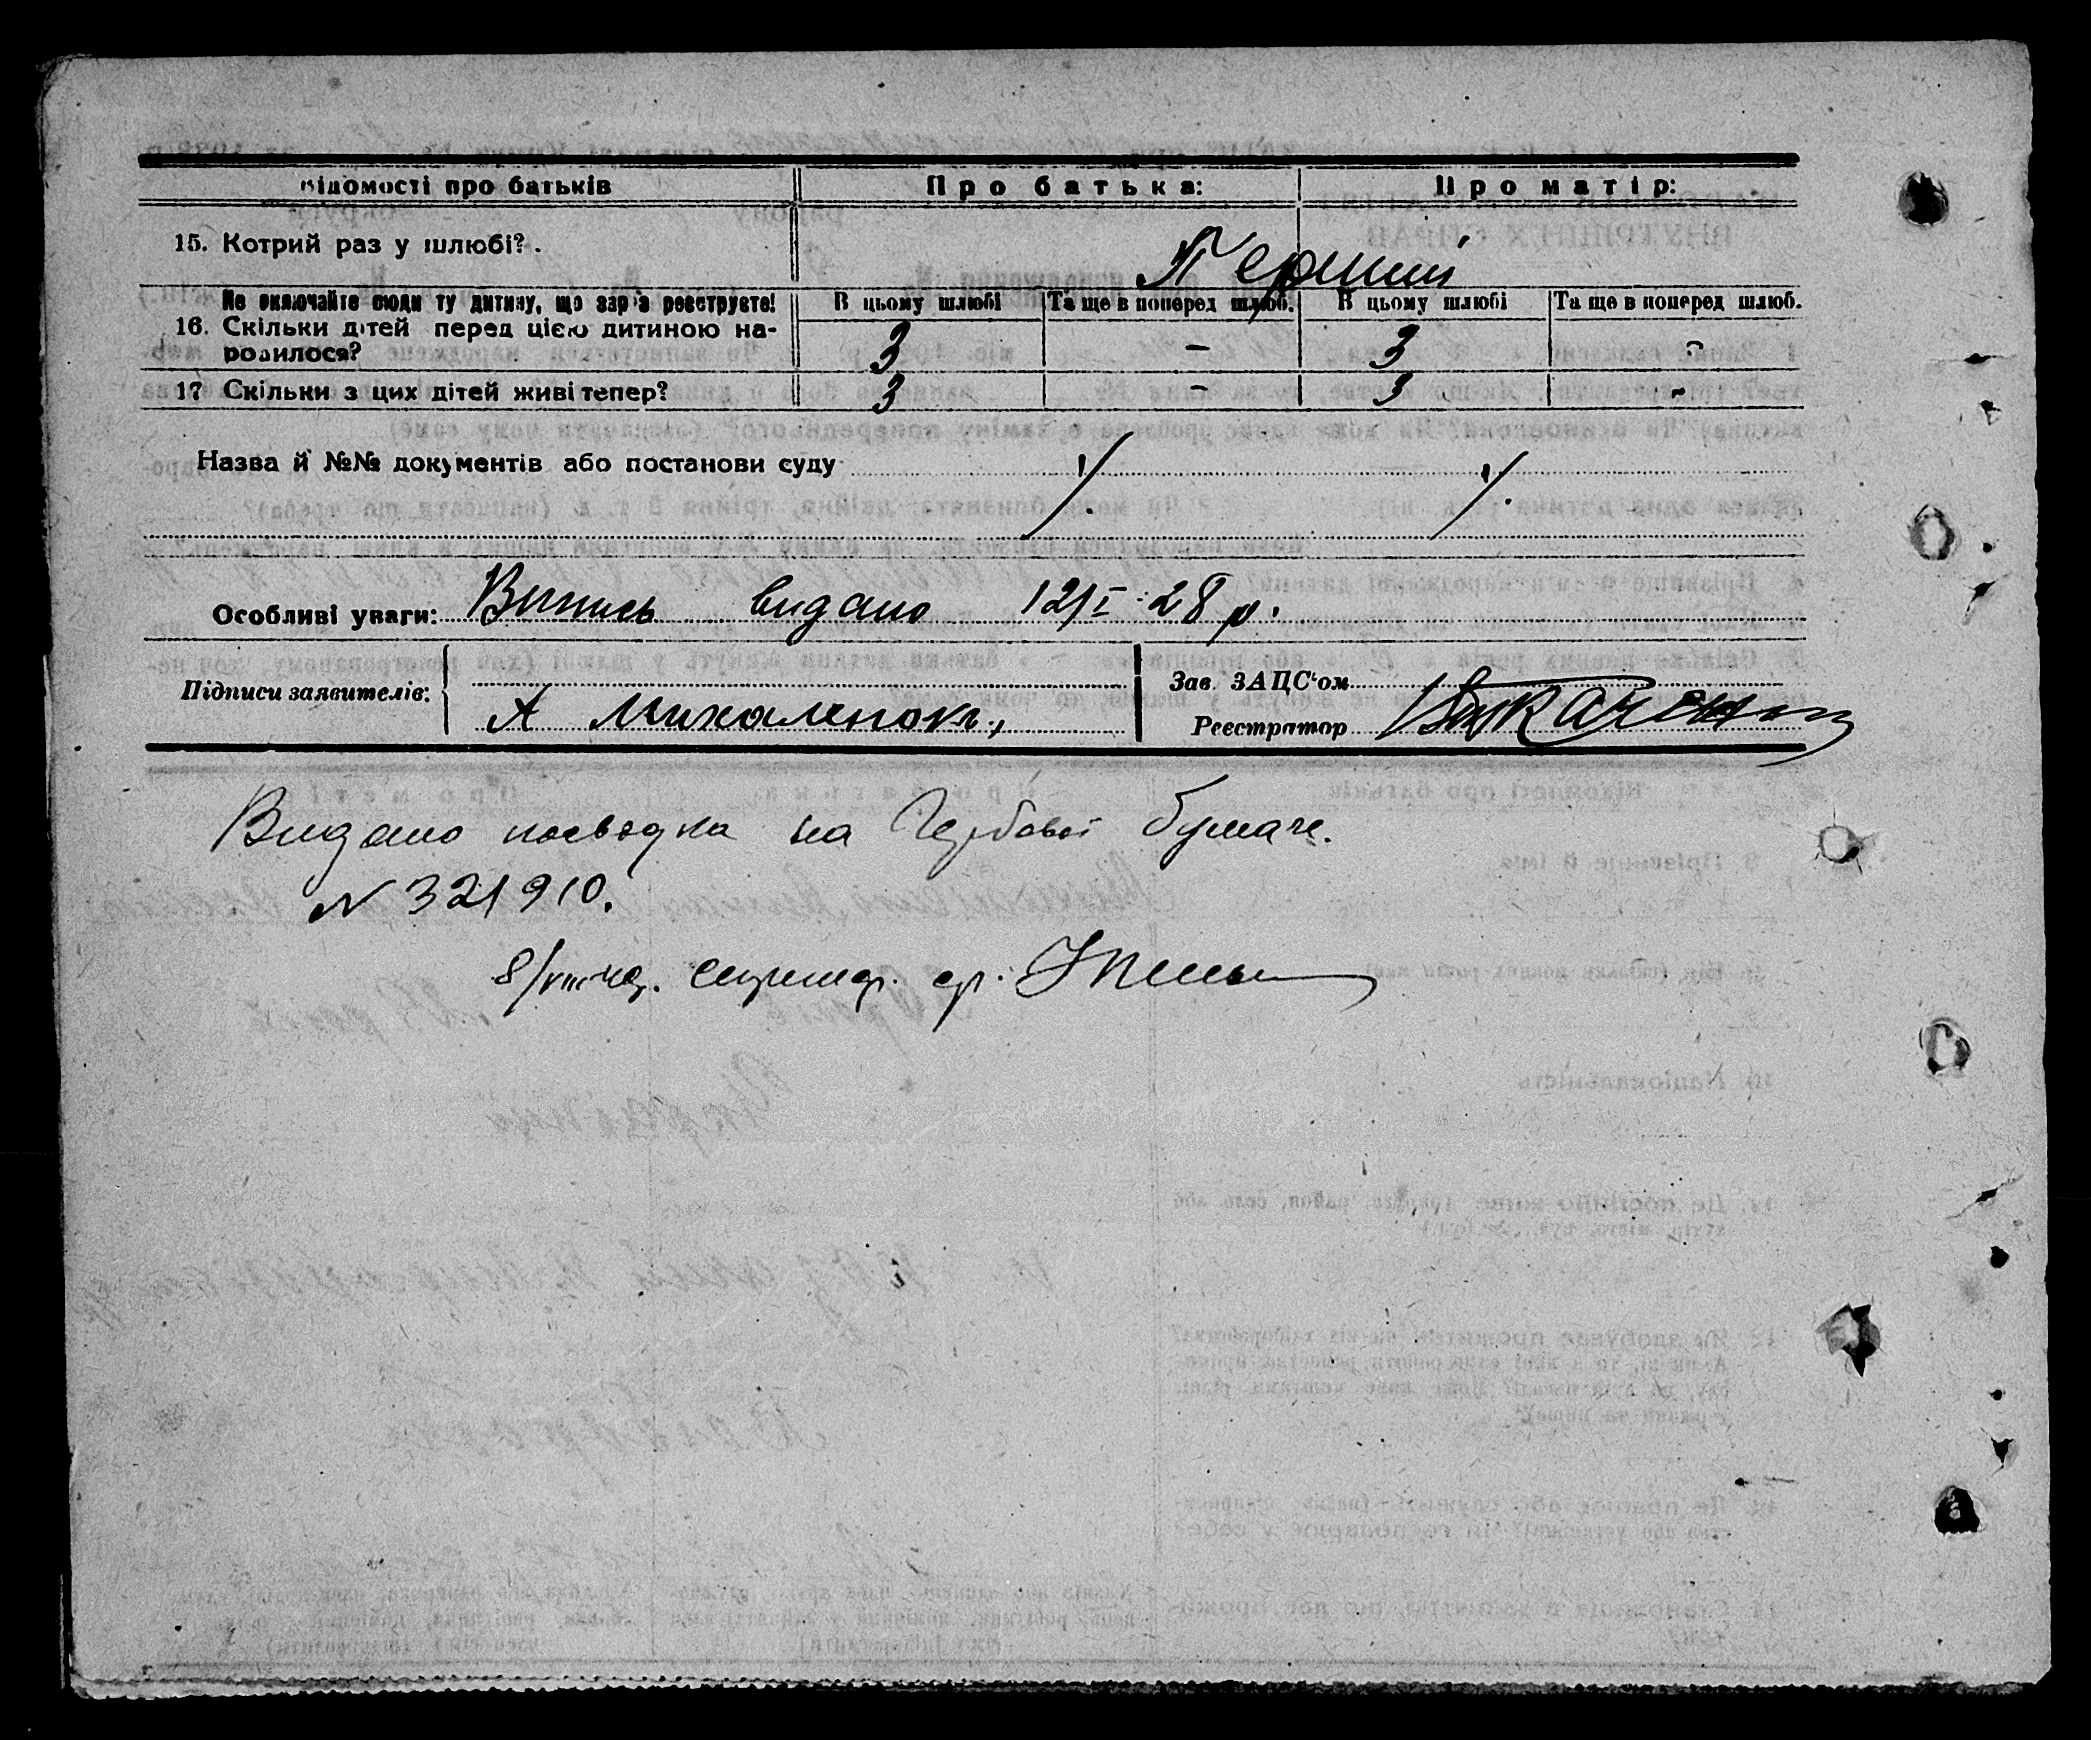 Відомості про батьків Про батька: Про матір:
15. Котрий раз у шлюбі? Перший
Не включайте сюди ту дитину, що зараз реєструєте! В цьому шлюбі Та ще в поперед шлюб. В цьому шлюбі Та ще в поперед шлюб.
16. Скільки дітей перед цією дитиною на-
родилося? 3 - 3 -
17 Скільки з цих дітей живі тепер? 3 - 3 -
Назва й №№ документів або постанови суду
Особливі уваги: Випись видано 12/I-28 р.
Підписи заявителів: Зав. ЗАЦС'ом
А Михаленокъ Реєстратор
Видано посвідка на Гербовой бумаге.
N 321910.
8/VIII